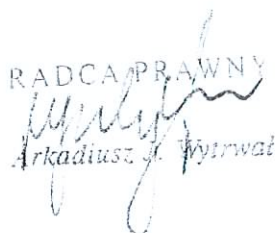 RADCA PRAWNY
Arkadiusz J. Wytrwał